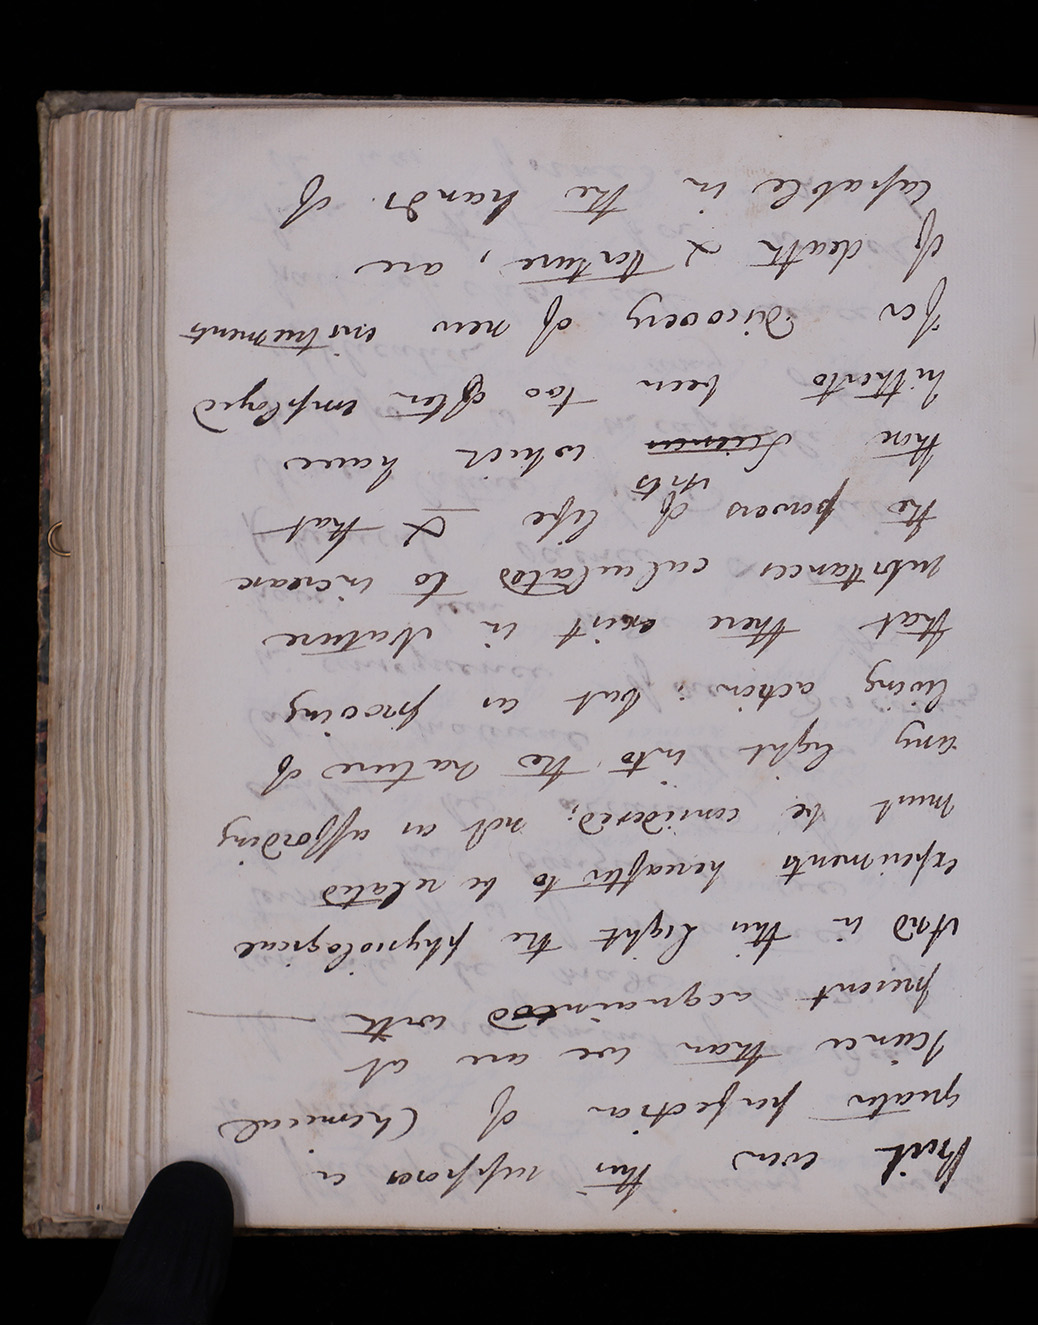 But even this supposes a
greater perfection of Chemical
science than we are at
present acquainted with —
And in this light the physiological
experiments hereafter to be related
must be considered; not as affording
any light into the nature of
living action; but as proving
that there exist in Nature
substances calculated to increase
the powers of life & that
arts
those Sciences which have
hitherto been too often employed
for discovery of new instruments
of death & torture, are
capable in the hands of